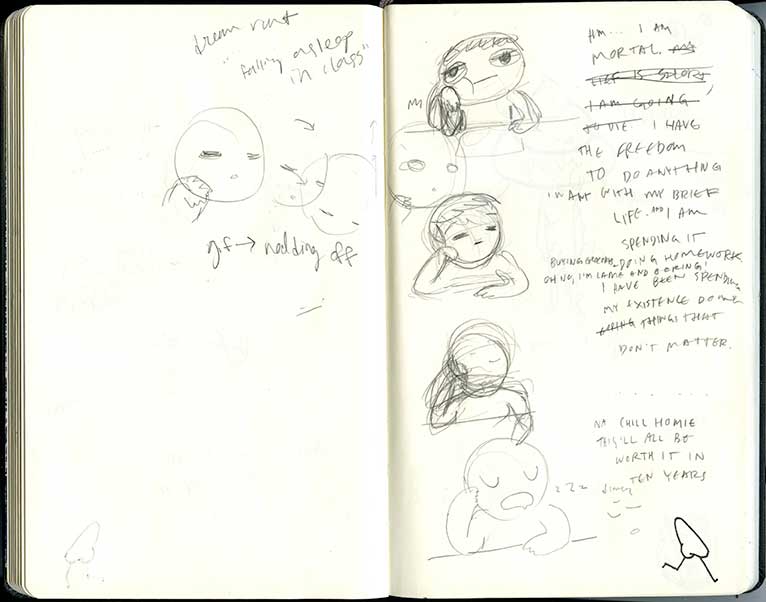 dream rant
"falling asleep
in class"
gf → nodding off
HM... I AM
MORTAL.
LIFE IS SHORT
I AM GOING
TO DIE. I HAVE
THE FREEDOM
TO DO ANYTHING
I WANT WITH MY BRIEF
LIFE. AND I AM
SPENDING IT
BUYING DOING HOMEWORK
OH NO, I'M LAME AND BORING!
I HAVE BEEN SPENDING
MY EXISTENCE DOING
THINGS THAT
DON'T MATTER.
NA CHILL HOMIE
THIS'LL ALL BE
WORTH IT IN
TEN YEARS
zzz